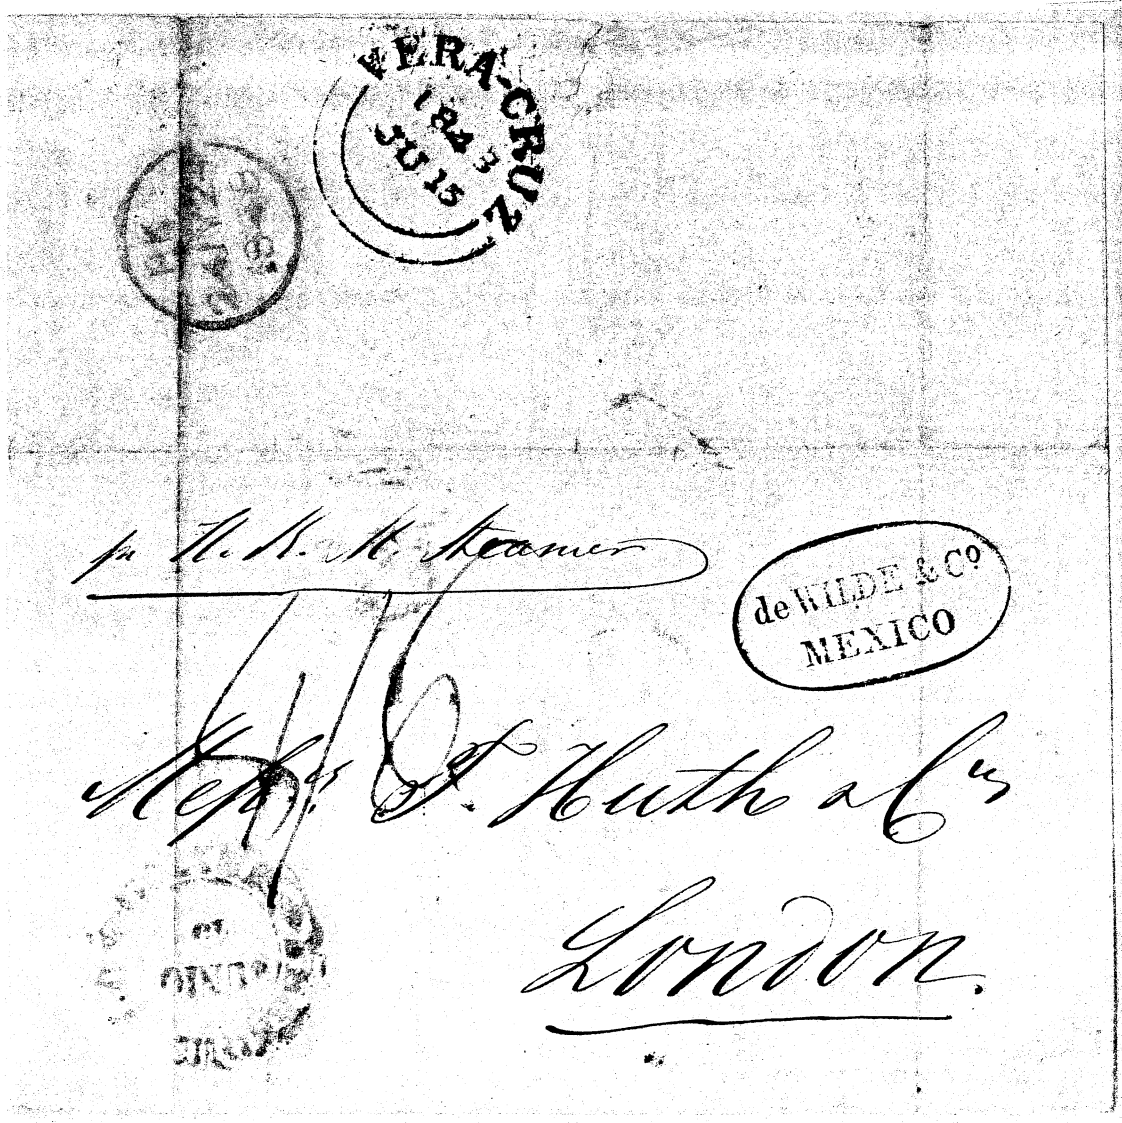 VERA-CRUZ
1843
JU 15
PK
24JY24
pr H. B. M. Steamer
de WILDE & Co
MEXICO
Messrs F. Huth & Co
London.